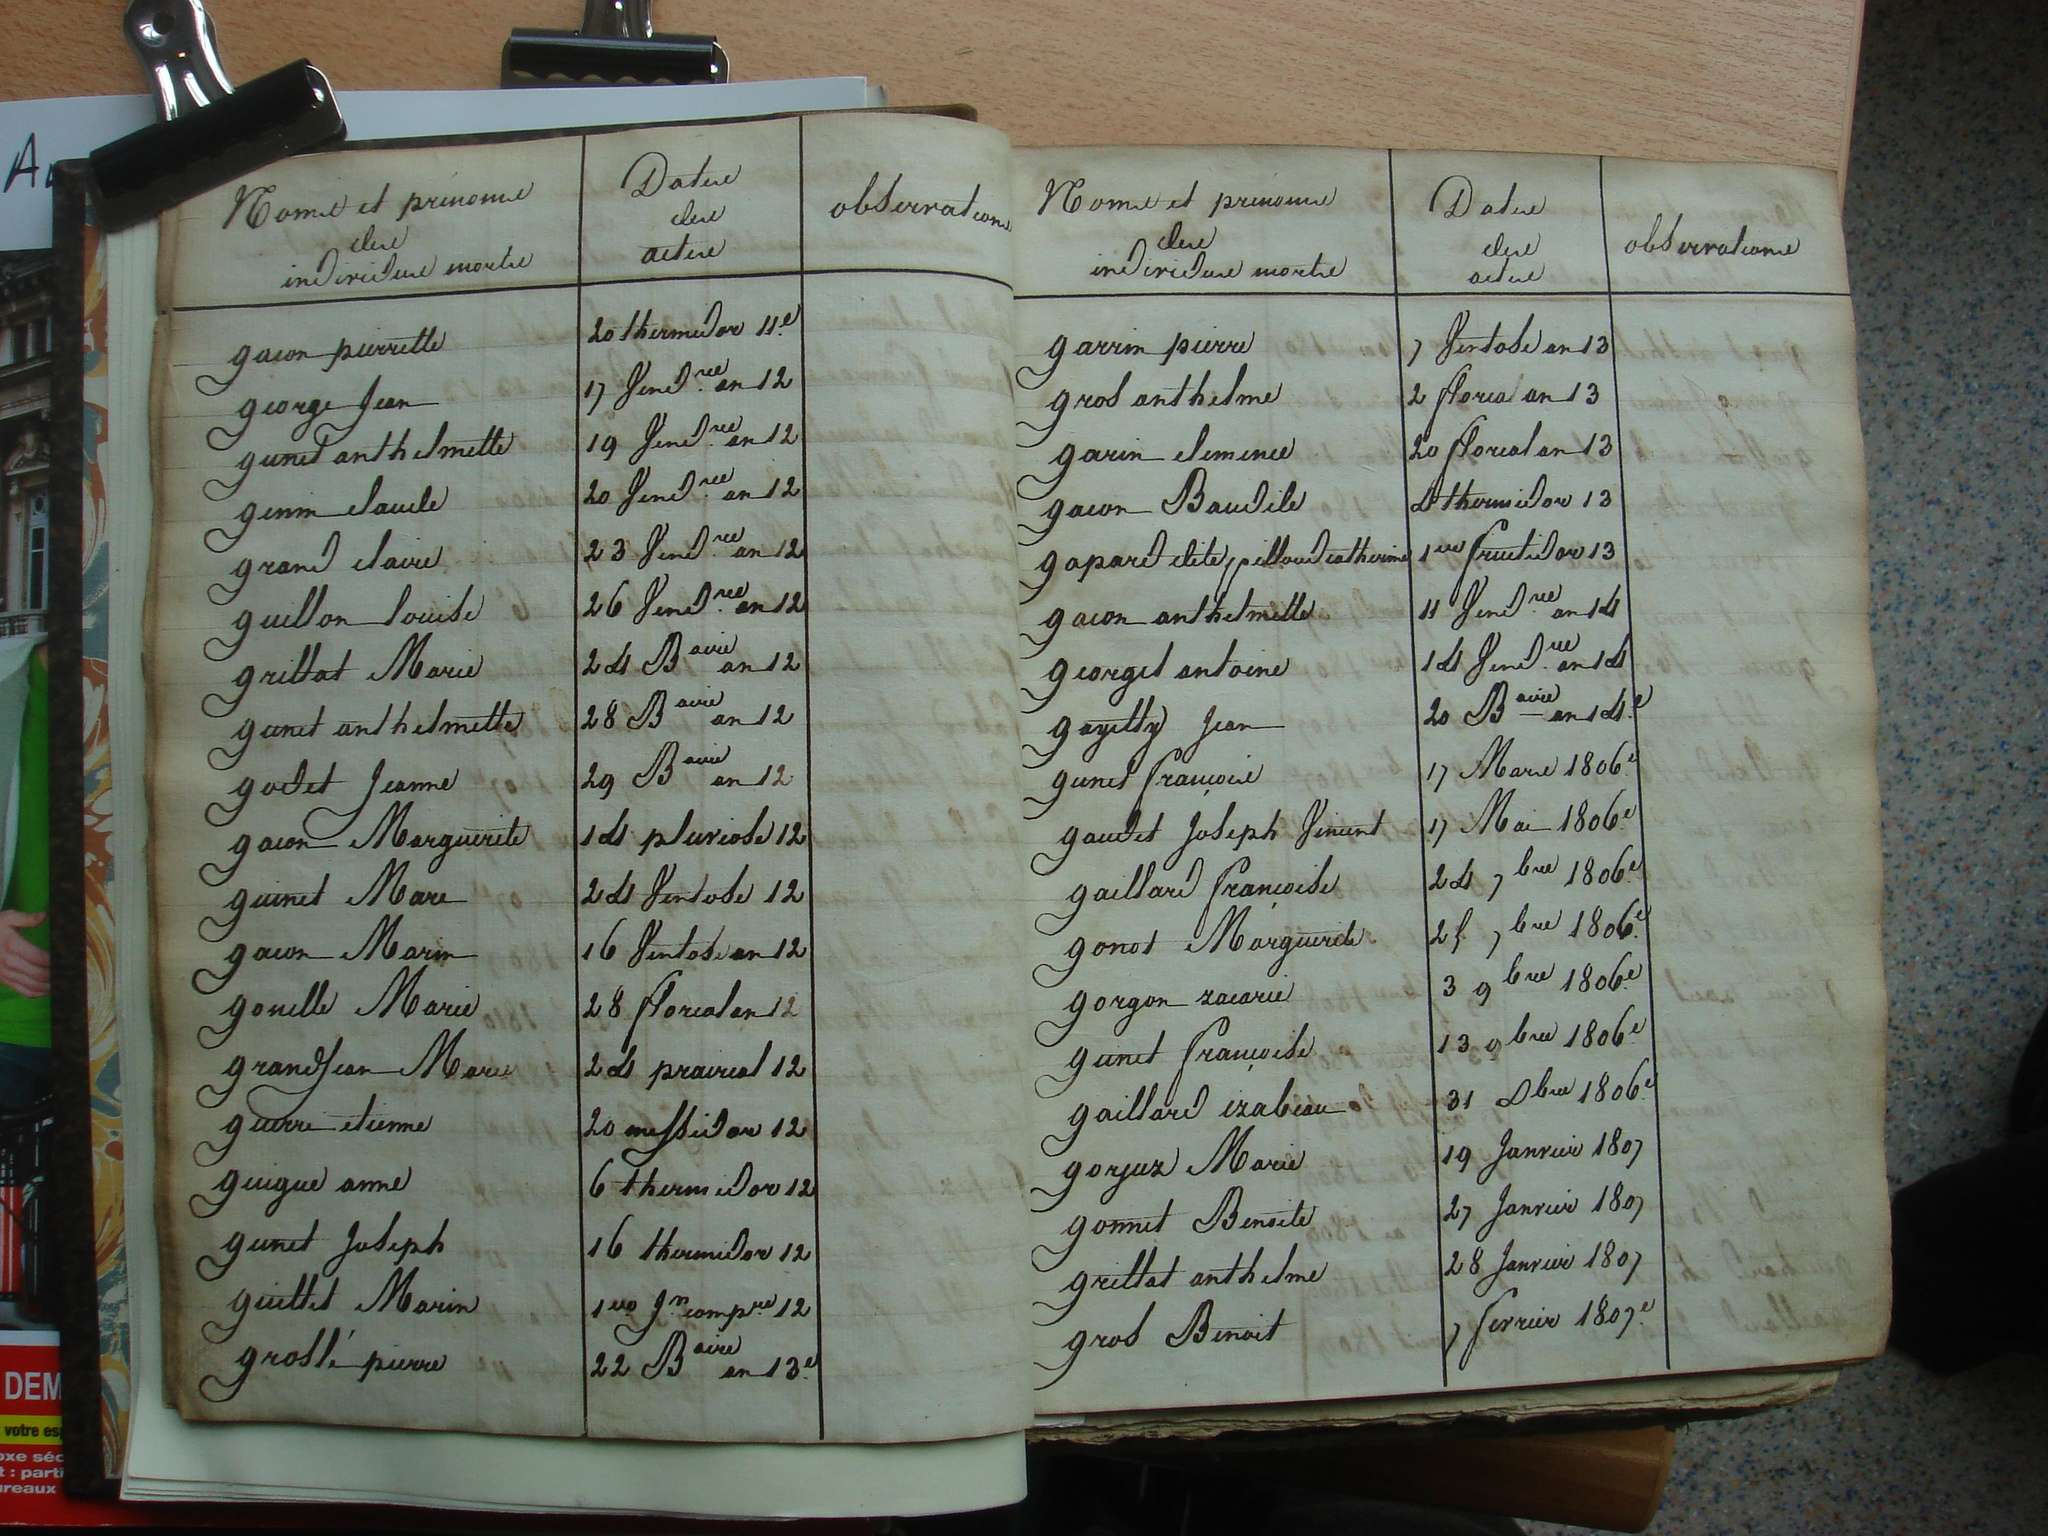 Au
Noms et prénoms
des
individus morts
Dates
des
actes
observations
gacon pierrette 20 thermidor 11.e
george Jean 17 Vend.re an 12
gunet anthelmette 19 Vend.re an 12
genin claude 20 Vend.re an 12
grand claire 23 Vend.re an 12
guillon louise 26 Vend.re an 12
grillat Marie 24 Baire an 12
gunet anthelmette 28 Baire an 12
godet Jeanne 29 Baire an 12
gacon Marguerite 14 pluviose 12
guinet Marc 24 Ventose 12
gacon Marin 16 Ventose an 12
gonelle Marie 28 floreal an 12
grandJean Marie 24 prairial 12
guerre etienne 20 messidor 12
guigue anne 6 thermidor 12
gunet Joseph 16 thermidor 12
guillet Marin 1er Jn compre 12
groslé pierre 22 Baire an 13.e
Noms et prénoms
des
individus morts
Dates
des
actes
observations
garrin pierre 7 Ventose an 13
gros anthelme 2 florea an 13
garin clemence 20 floreal an 13
gacon Baudile 4 thermidor 13
gapard dite pilloud catherine 1er fructidor 13
gacon anthelmette 11 Vend.re an 14
georget antoine 14 Vend.re an 14
goyetty Jean 20 Baire an 14.e
gunet françois 17 Mars 1806.e
gaudet Joseph Vincent 17 Mai 1806.e
gaillard françoise 24 7bre 1806.e
gonot Marguerite 25 7bre 1806.e
gorgon zacarie 3 9bre 1806.e
gunet françoise 13 9bre 1806.e
gaillard izabeau 31 Dbre 1806.e
gorjuz Marie 19 Janvier 1807
gonnet Benoite 27 Janvier 1807
grillat anthelme 28 Janvier 1807
gros Benoit 7 fevrier 1807.e
DEM
votre esp
oxe séc
t : parti
ureaux